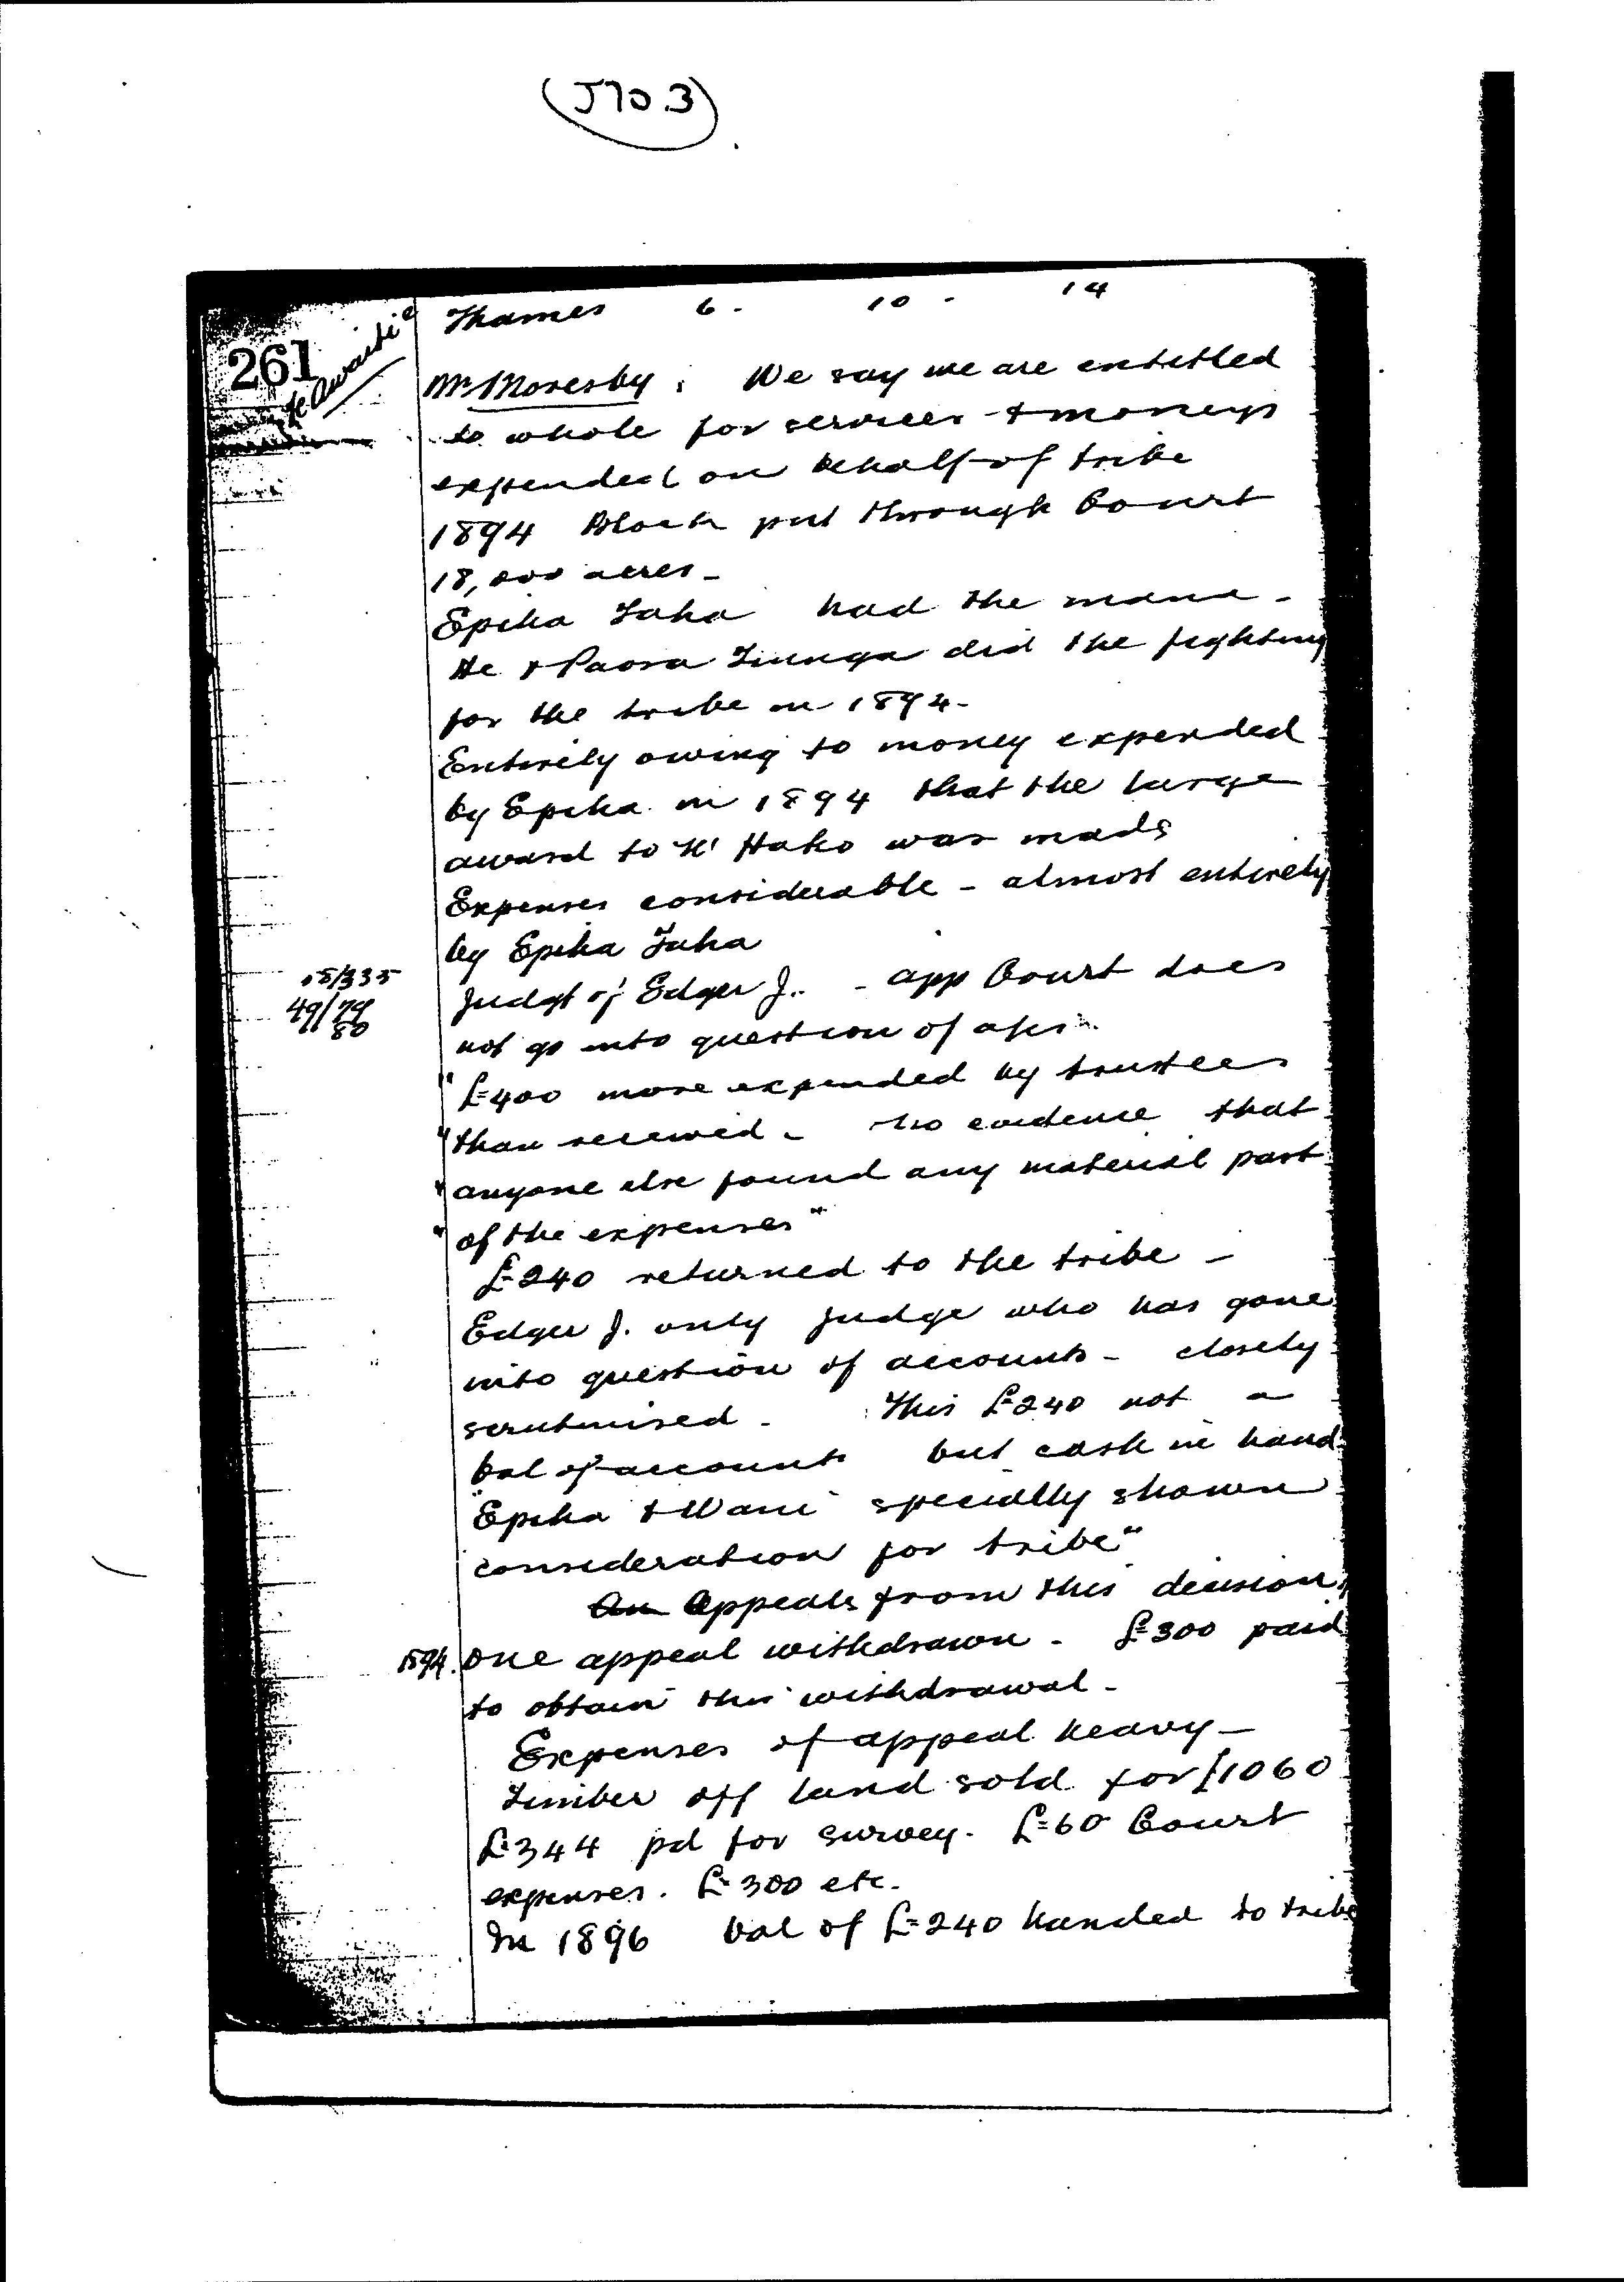 (J70.3)
Thames 6 - 10 - 14
261
Mr Moresby : We say we are entitled
to whole for services & moneys
expended on behalf of tribe
1894 Block put through Court
18,000 acres -
Epiha Taha had the mana -
He & Paora Tiunga did the fighting
for the tribe in 1894 -
Entirely owing to money expended
by Epiha in 1894 that the large
award to N' Hako was made
Expenses considerable - almost entirely
by Epiha Taha
49/79
80
Judgt of Edger J. - App Court does
not go into question of
"£400 more expended by trustees
"than received - No evidence that
"anyone else found any material part
"of the expenses"
£240 returned to the tribe -
Edger J. only Judge who has gone
into question of accounts - closely
scrutinised - This £240 not a
bal of accounts but cash in hand
"Epiha & Wani specially shown
consideration for tribe"
An Appeals from this decision,
1894. one appeal withdrawn - £300 paid
to obtain this withdrawal -
Expenses of appeal heavy -
Timber off land sold for £1060
£344 pd for survey. £60 Court
expenses. £300 etc.
In 1896 bal of £240 handed to tribe